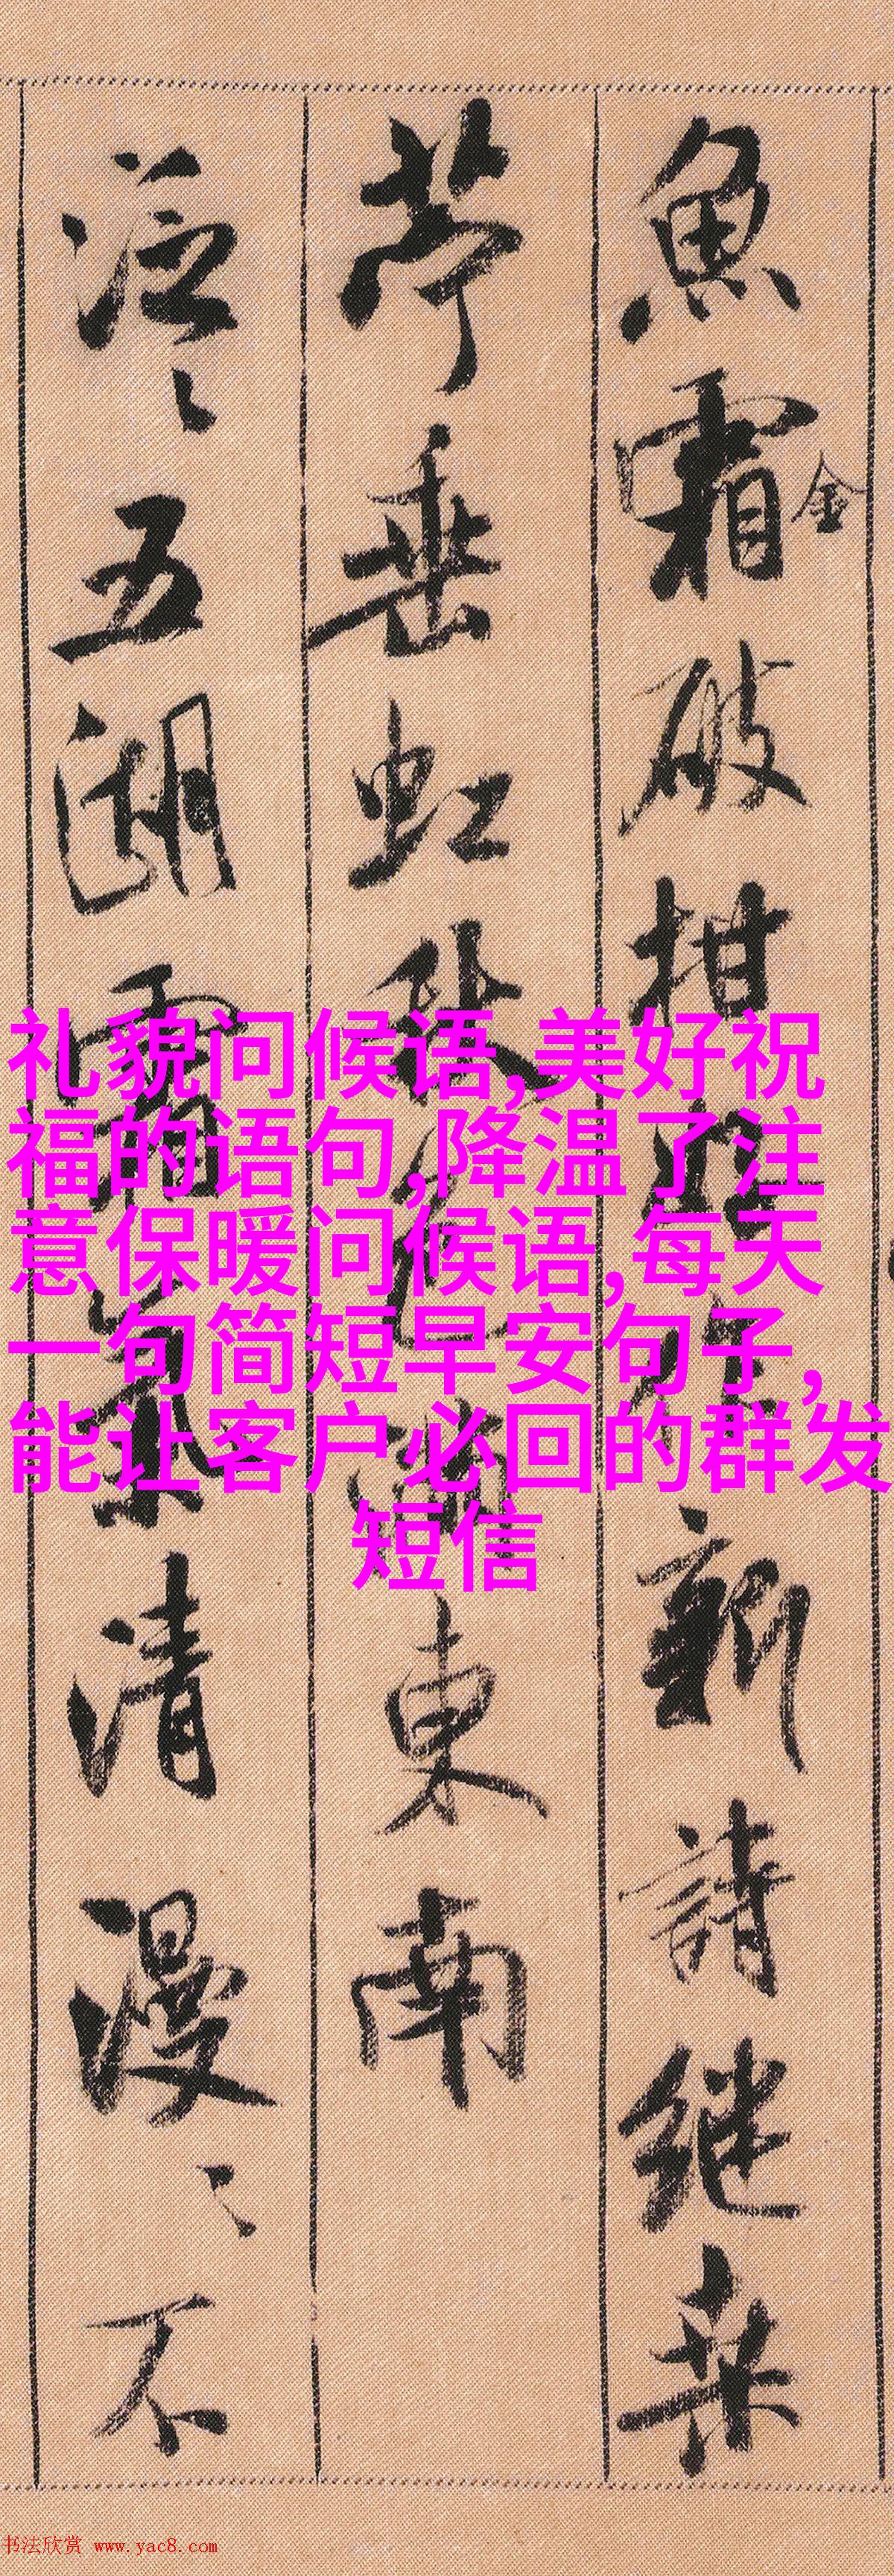 魚霜金破柑好作新詩継桑
苧垂虹秋色滿東南
泛〻五湖霜氣清漫〻不
礼貌问候语,美好祝
福的语句,降温了注
意保暖问候语,每天
一句简短早安句子,
能让客户必回的群发
短信
书法欣赏 www.yac8.com